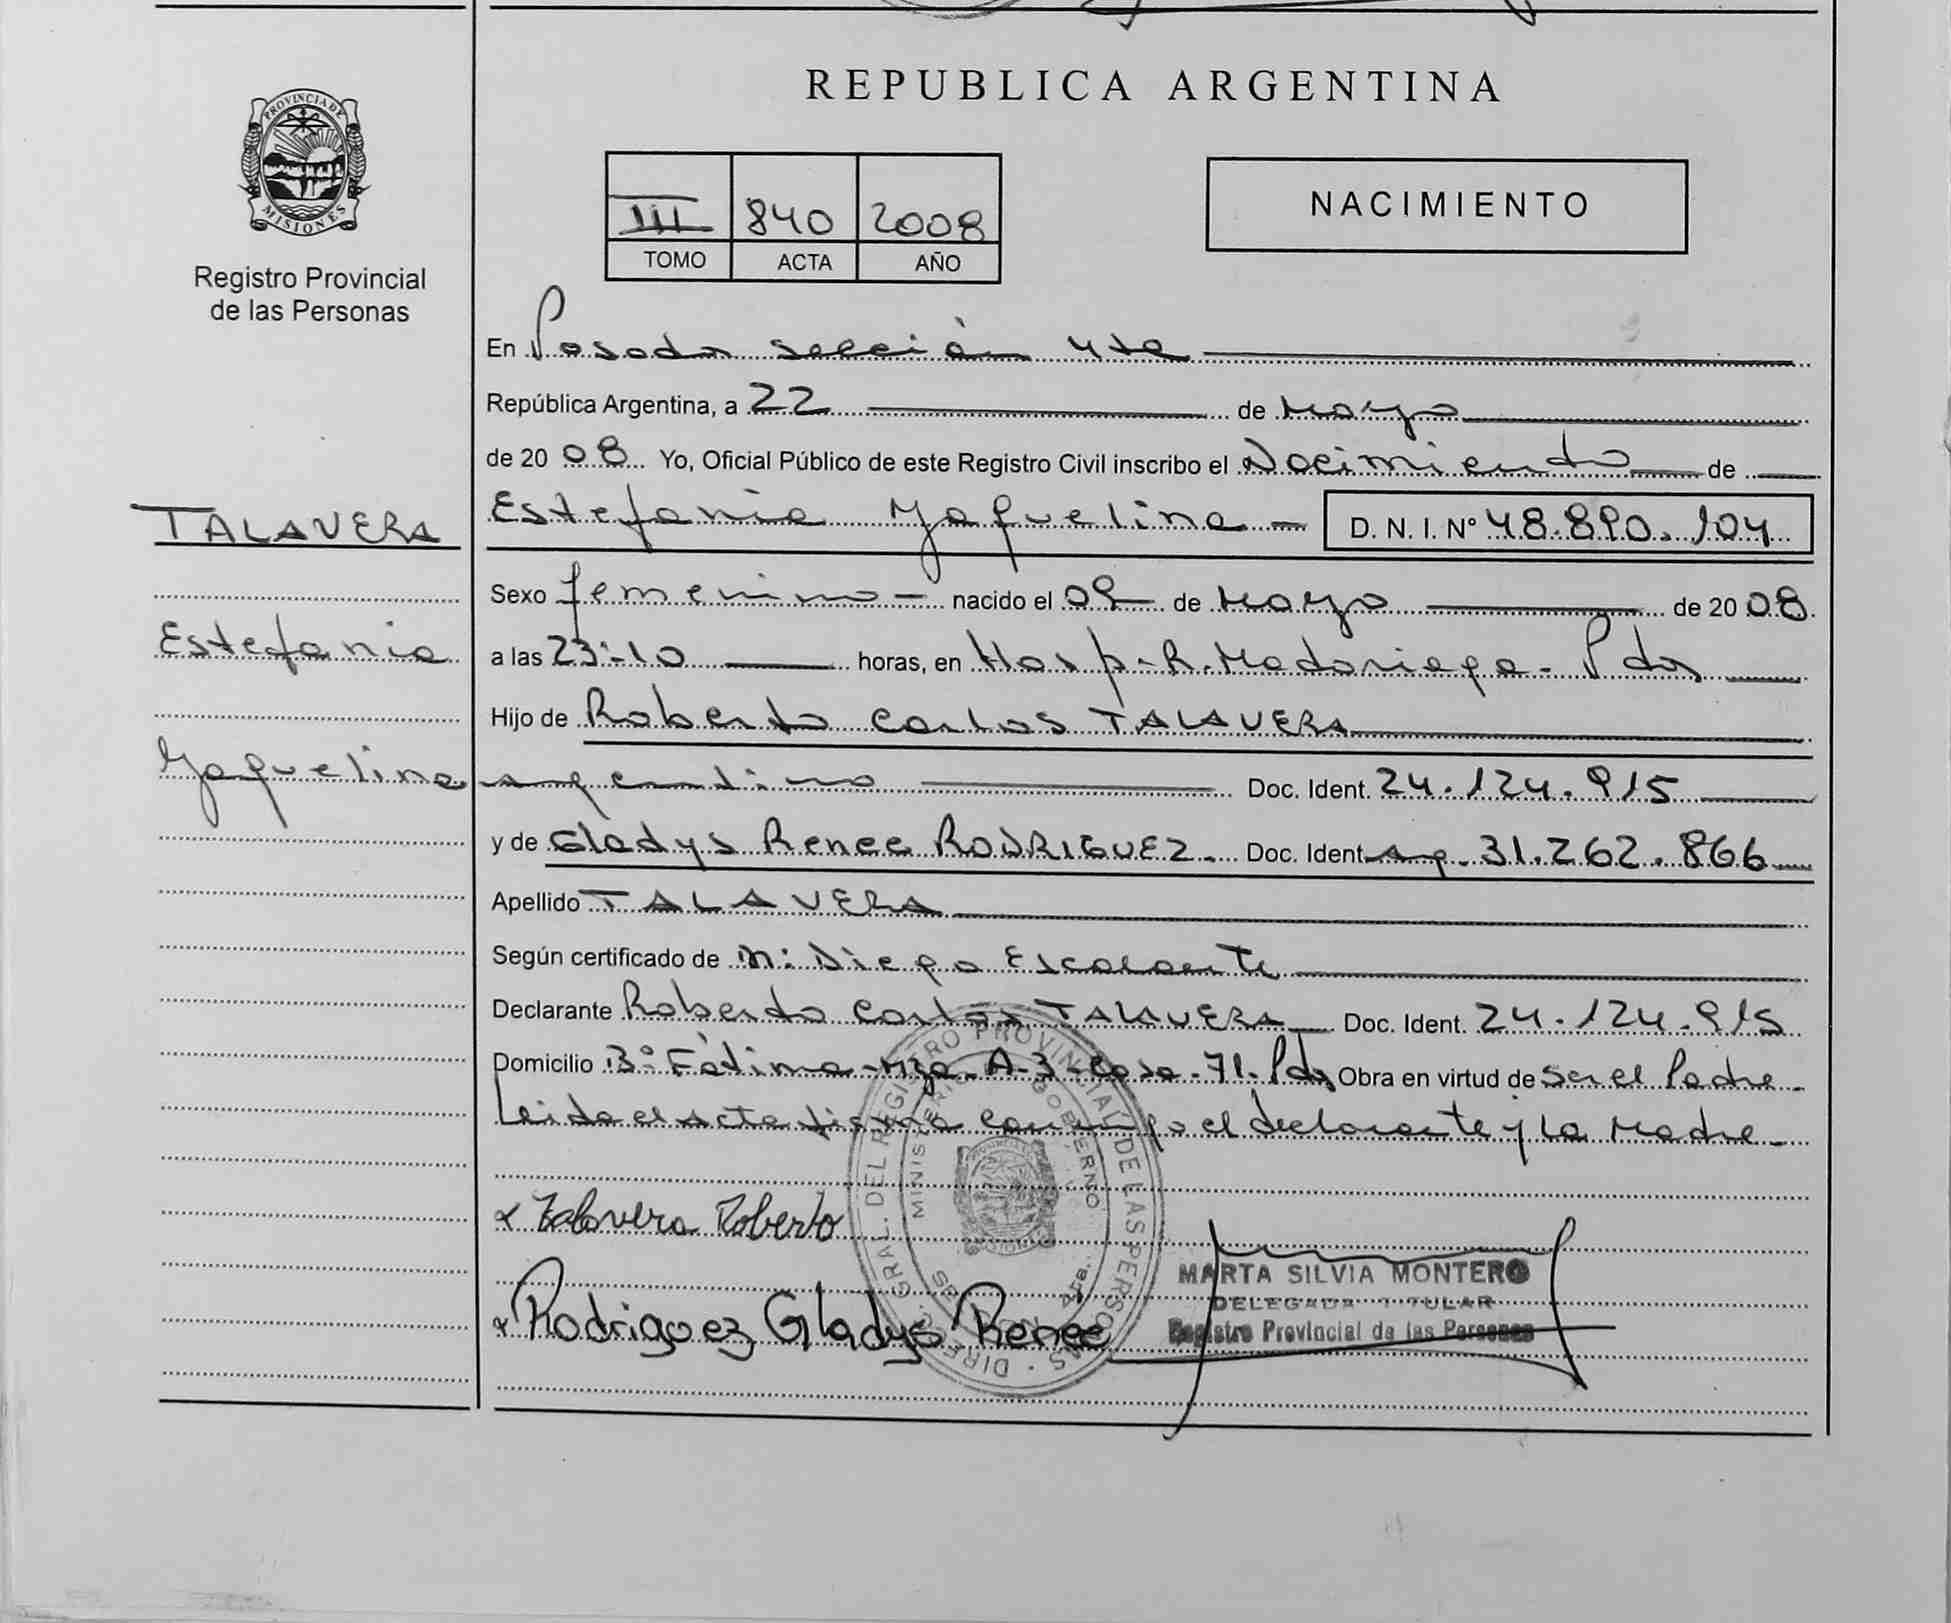 REPUBLICA ARGENTINA
PROVINCIA DE MISIONES
Registro Provincial
de las Personas
III 840 2008
TOMO ACTA AÑO
NACIMIENTO
En Posadas sección 4ta
República Argentina, a 22 de Mayo
de 2008 Yo, Oficial Público de este Registro Civil inscribo el Nacimiento de
TALAVERA
Estefania Yaquelina D. N. I. N° 48.890.104
Sexo femenino nacido el 09 de Mayo de 2008
Estefania
a las 23:10 horas, en Hosp. R. Madariaga - Pdas
Hijo de Roberto Carlos TALAVERA
Yaquelina
argentino Doc. Ident. 24.124.915
y de Gladys Renee RODRIGUEZ Doc. Ident. Arg. 31.262.866
Apellido TALAVERA
Según certificado de M: Diego Escalante
Declarante Roberto Carlos TALAVERA Doc. Ident. 24.124.915
Domicilio B° Fátima - Mza - A-3 - Casa - 71. Pdas Obra en virtud de ser el Padre -
Leida el acta firma conmigo el declarante y la Madre -
x Talavera Roberto
x Rodriguez Gladys Renee
DIREC. GRAL. DEL REGISTRO PROVINCIAL DE LAS PERSONAS
MINISTERIO GOBIERNO
4ta.
MARTA SILVIA MONTERO
DELEGADA TITULAR
Registro Provincial de las Personas